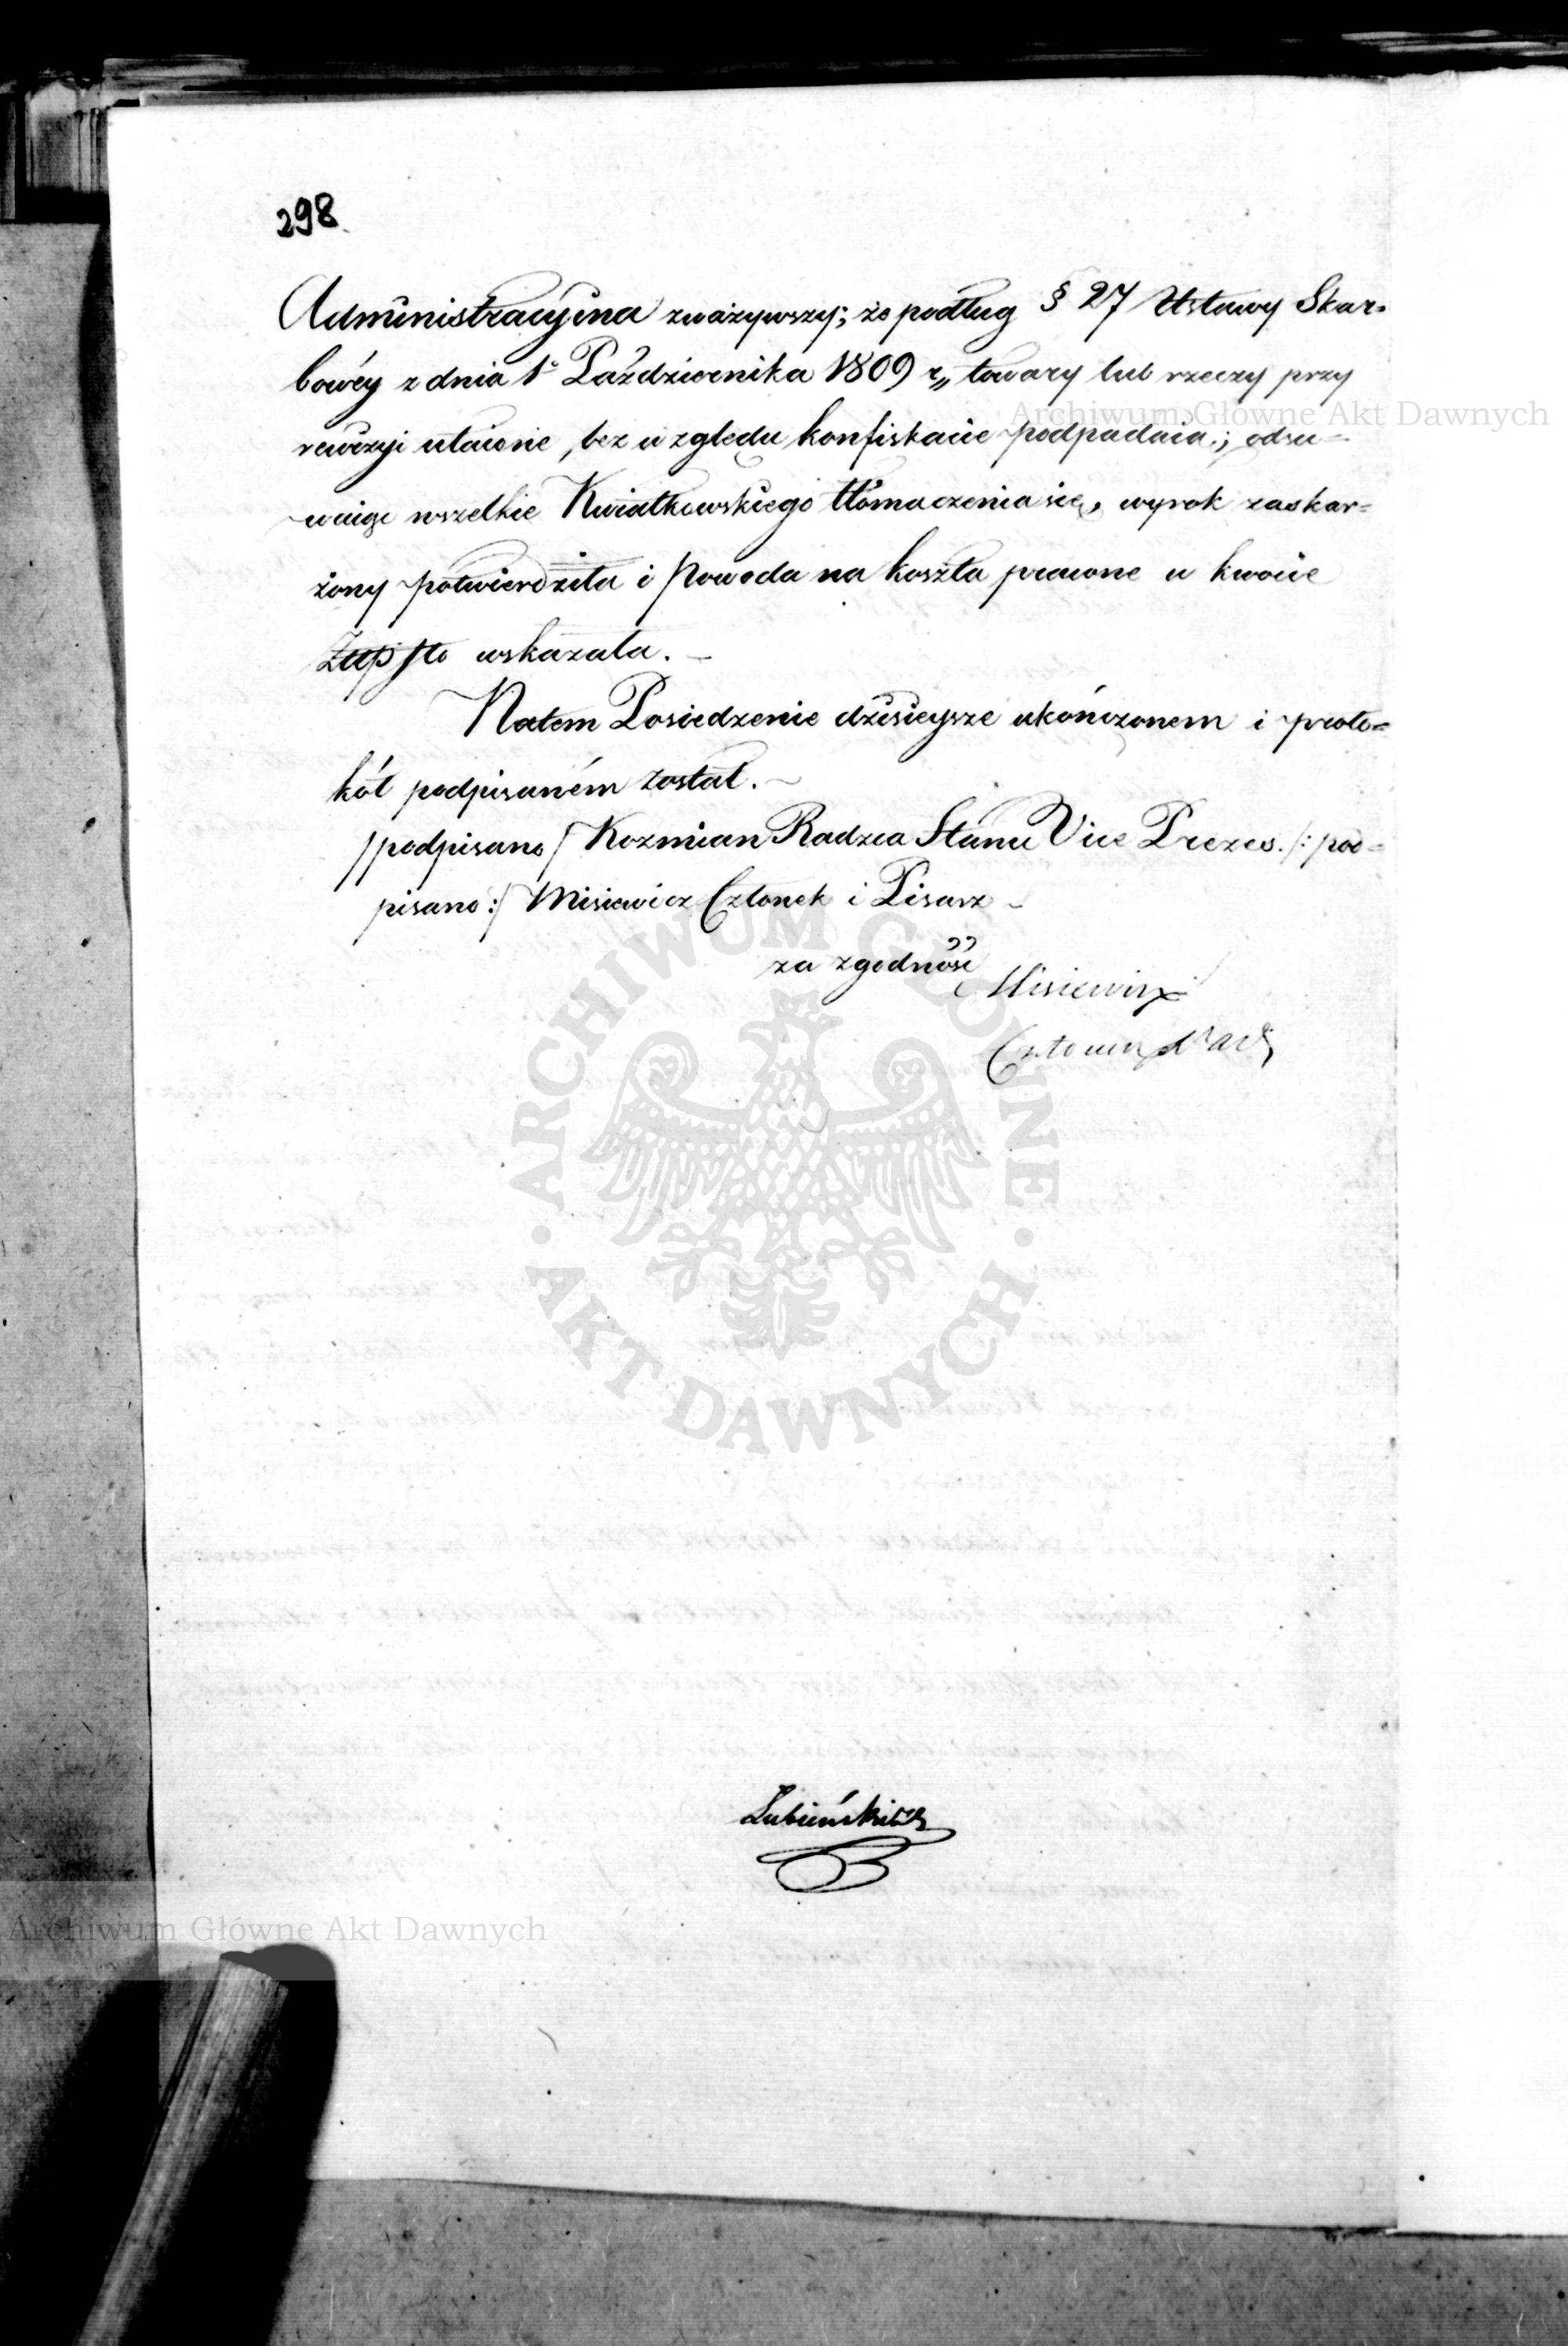 298
Administracyjna zważywszy; że podług § 27 Ustawy Skar=
bowéy z dnia 1° Października 1809 r„ towary lub rzeczy przy
rewizyi utaione, bez względu konfiskacie podpadaią; odsu=
waiąc wszelkie Kwiatkowskiego tłómaczenia się, wyrok zaskar=
żony potwierdziła i Powoda na koszta prawne w kwocie
wskazała. –
Natem Posiedzenie dzisieysze ukończonem i proto=
kół podpisaném został. –
/podpisano/ Kozmian Radzca Stanu Vice Prezes. /: pod=
pisano :/ Misiewicz Członek i Pisarz –
za zgodność
Misiewicz
Lubieński
Archiwum Główne Akt Dawnych
ARCHIWUM GŁÓWNE
· AKT DAWNYCH ·
Archiwum Główne Akt Dawnych